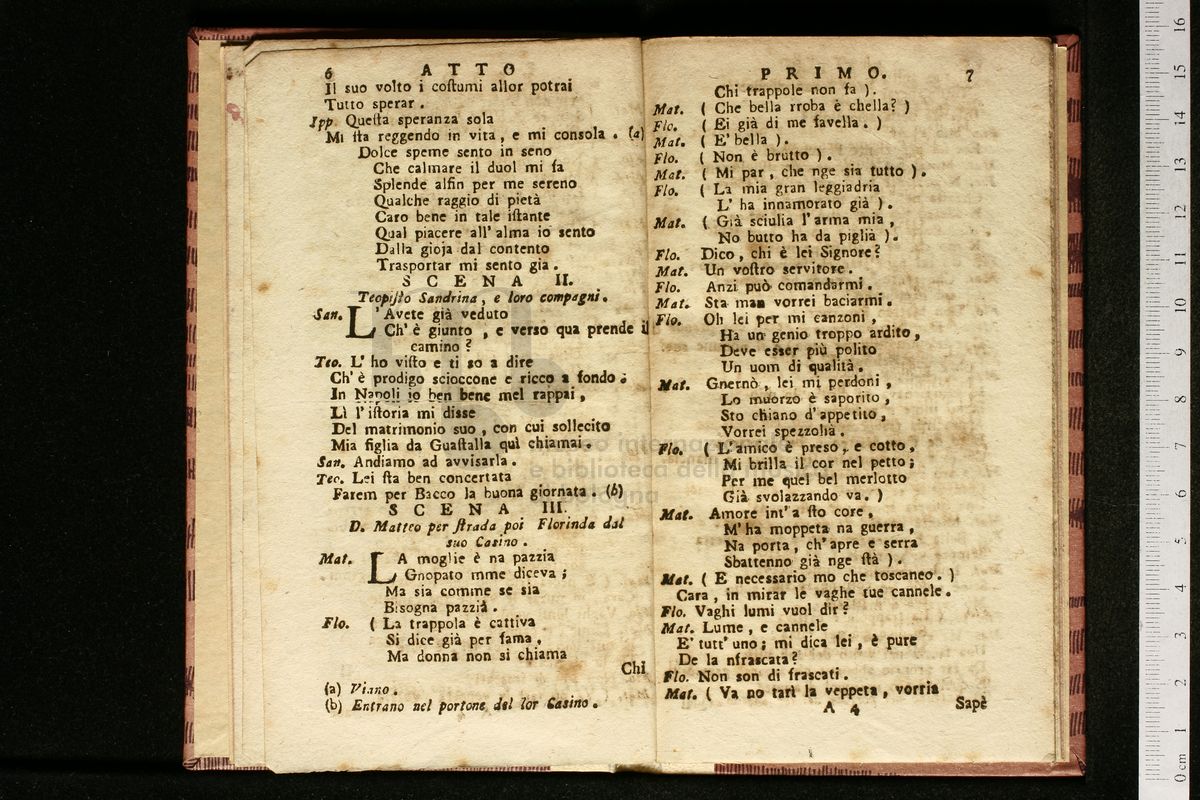 6 ATTO
Il suo volto i coſtumi allor potrai
Tutto sperar .
Ipp. Queſta speranza sola
Mi ſta reggendo in vita, e mi consola . (a)
Dolce speme sento in seno
Che calmare il duol mi fa
Splende alfin per me sereno
Qualche raggio di pietà
Caro bene in tale iſtante
Qual piacere all' alma io sento
Dalla gioja dal contento
Trasportar mi sento gia .
SCENA II.
Teopiſto Sandrina, e loro compagni.
San. L' Avete già veduto
Ch' è giunto , e verso qua prende il
camino ?
Teo. L' ho viſto e ti so a dire
Ch' è prodigo scioccone e ricco a fondo :
In Napoli io ben bene mel rappai ,
Lì l' iſtoria mi disse
Del matrimonio suo , con cui sollecito
Mia figlia da Guaſtalla quì chiamai .
San. Andiamo ad avvisarla .
Teo. Lei ſta ben concertata
Farem per Bacco la buona giornata . (b)
SCENA III.
D. Matteo per ſtrada poi Florinda dal
suo Casino .
Mat. LA moglie è na pazzia
Gnopato mme diceva ;
Ma sia comme se sia
Bisogna pazzià .
Flo. ( La trappola è cattiva
Si dice già per fama ,
Ma donna non si chiama
Chi
(a) Viano .
(b) Entrano nel portone del lor Casino .
PRIMO. 7
Chi trappole non fa ).
Mat. ( Che bella rroba è chella? )
Flo. ( Ei già di me favella. )
Mat. ( E' bella ).
Flo. ( Non è brutto ).
Mat. ( Mi par , che nge sia tutto ).
Flo. ( La mia gran leggiadria
L' ha innamorato già ).
Mat. ( Già sciulia l' arma mia ,
No butto ha da piglià ).
Flo. Dico , chi è lei Signore?
Mat. Un voſtro servitore .
Flo. Anzi può comandarmi .
Mat. Sta man vorrei baciarmi .
Flo. Oh lei per mi canzoni ,
Ha un genio troppo ardito ,
Deve esser più polito
Un uom di qualità .
Mat. Gnernò , lei mi perdoni ,
Lo muorzo è saporito ,
Sto chiano d' appetito ,
Vorrei spezzolià .
Flo. ( L' amico è preso , e cotto ,
Mi brilla il cor nel petto ;
Per me quel bel merlotto
Già svolazzando va . )
Mat. Amore int' a ſto core ,
M' ha moppeta na guerra ,
Na porta , ch' apre e serra
Sbattenno già nge ſtà ).
Mat. ( E necessario mo che toscaneo . )
Cara , in mirar le vaghe tue cannele .
Flo. Vaghi lumi vuol dir ?
Mat. Lume , e cannele
E' tutt' uno ; mi dica lei , è pure
De la nfrascata ?
Flo. Non son di frascati .
Mat. ( Va no tarì la veppeta , vorria
A 4 Sapè